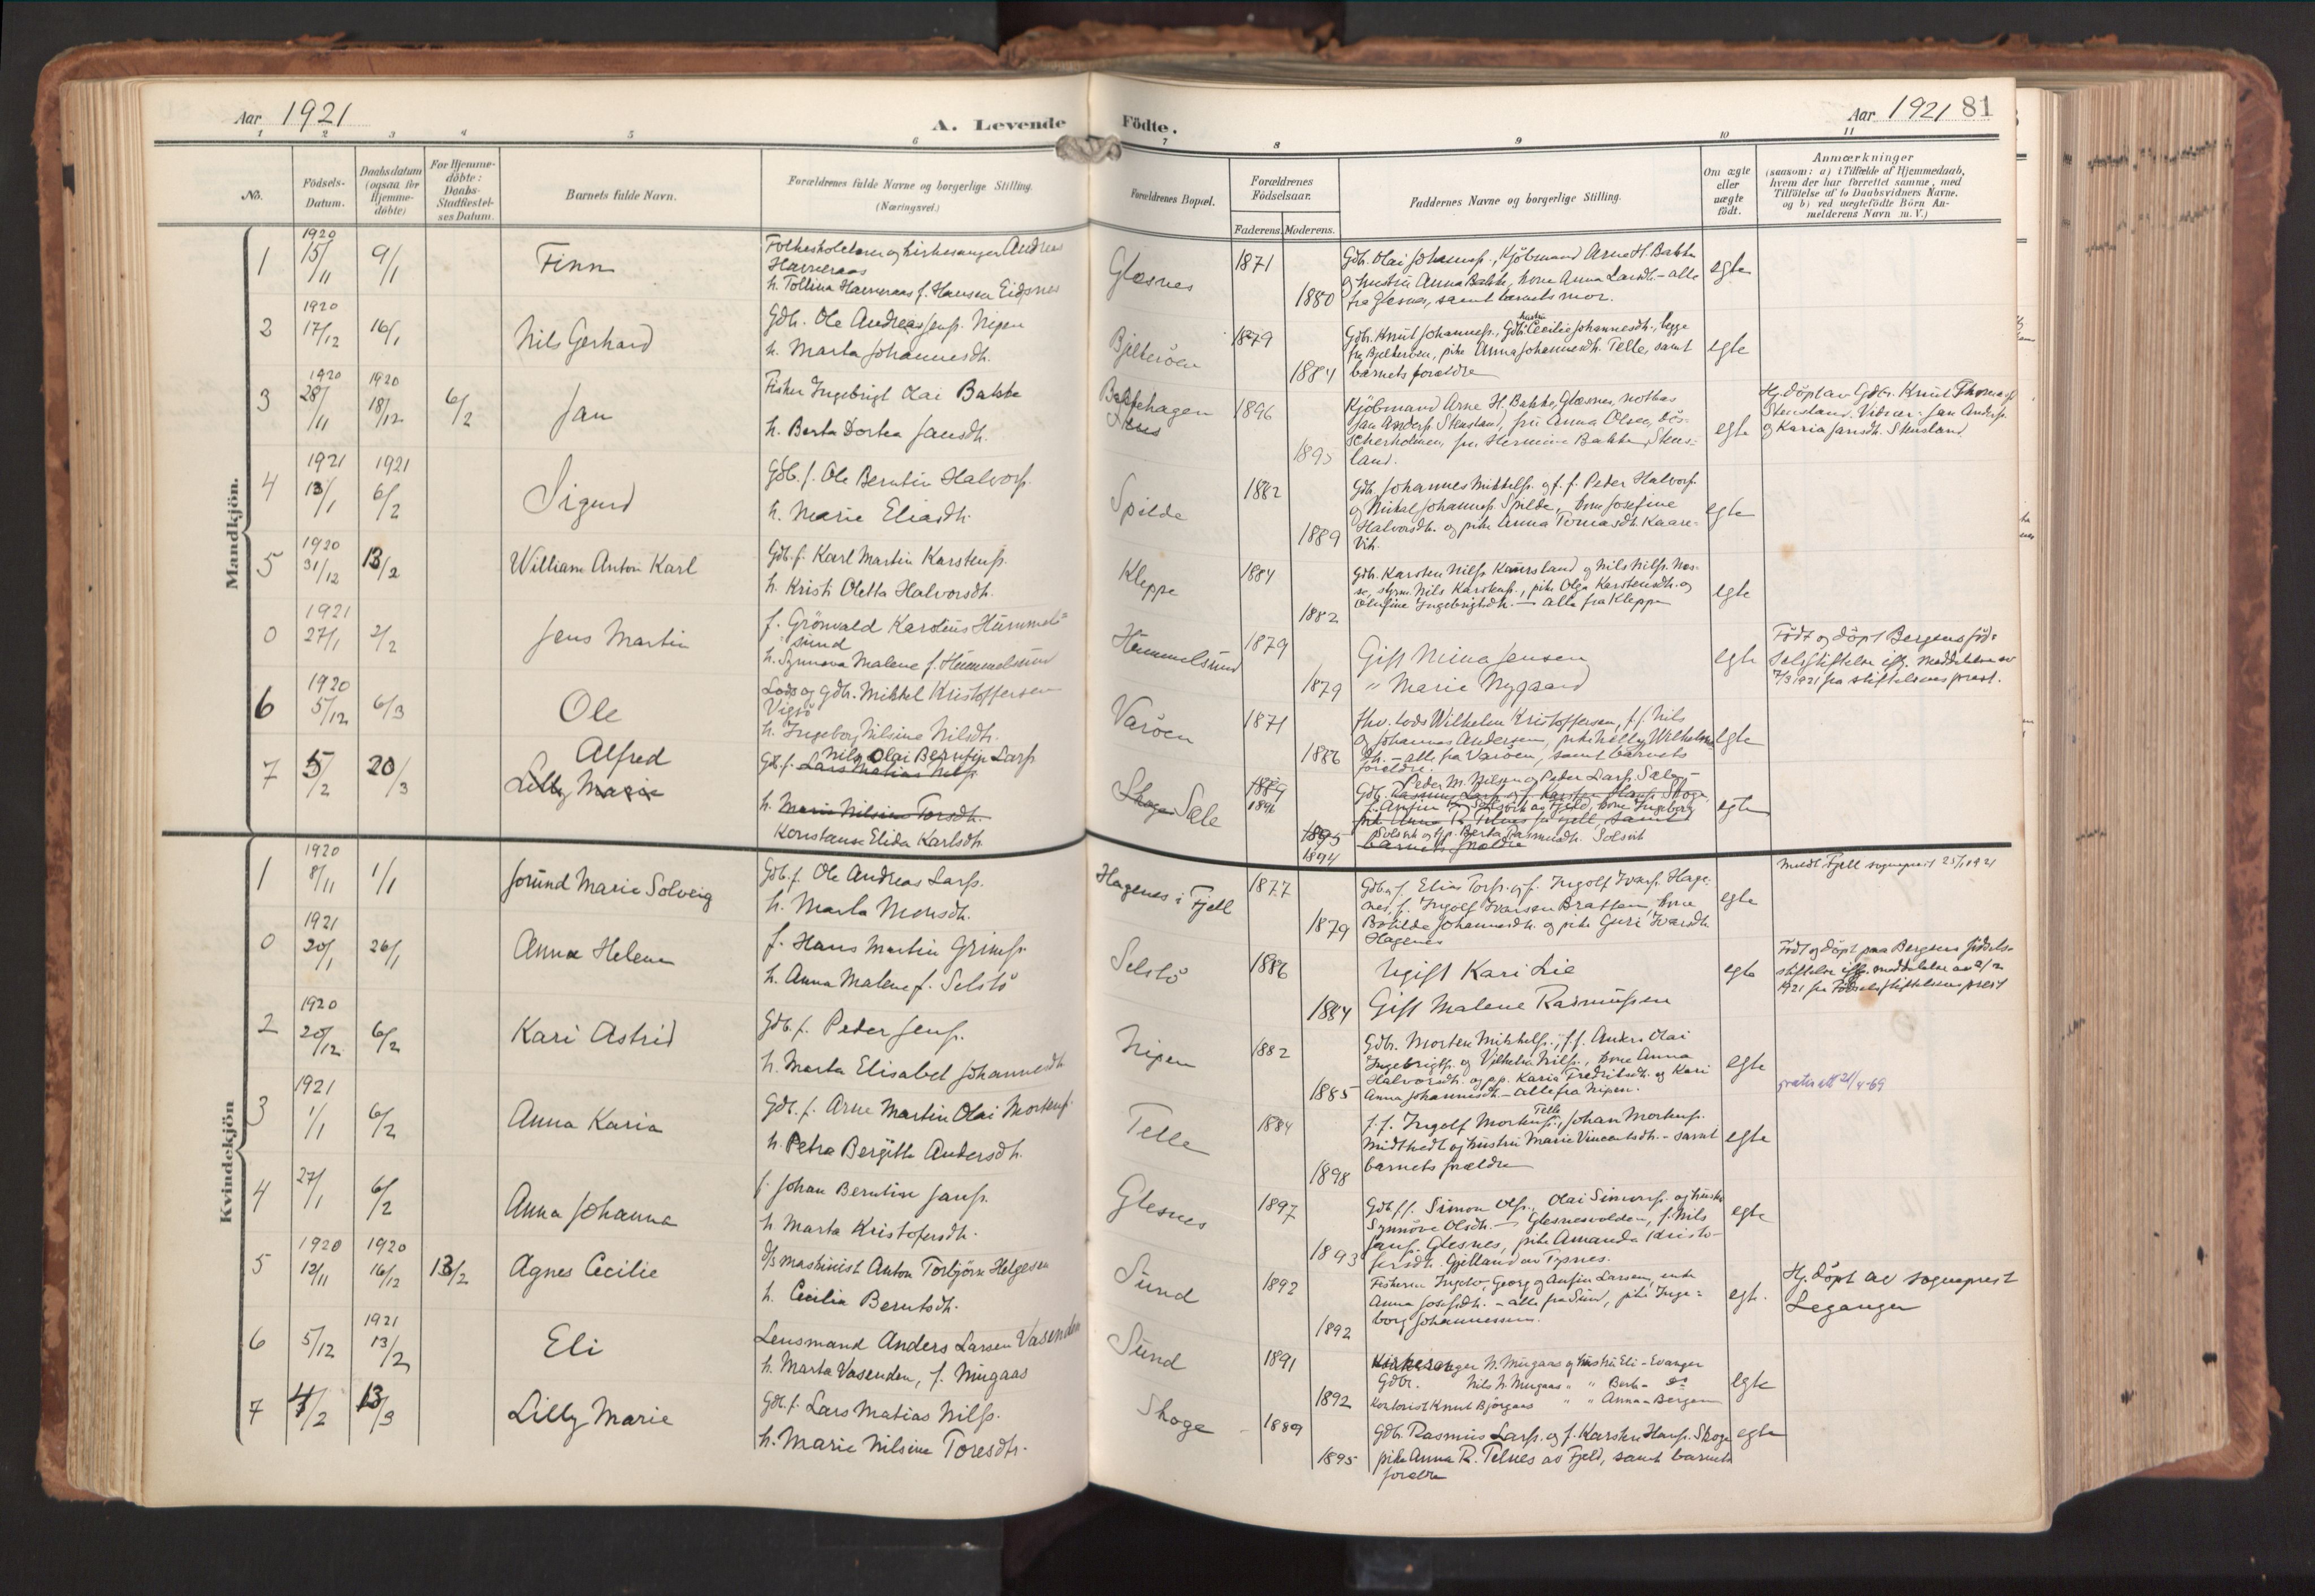 Aar 1921
A. Levende Födte.
Aar 1921 81
1 2 3 4 5 6 7 8 9 10 11
No.
Födsels-
Datum.
Daabsdatum
(ogsaa for
Hjemme-
döbte)
For Hjemme-
döbte:
Daabs-
Stadfæstel-
ses Datum.
Barnets fulde Navn.
Forældrenes fulde Navne og borgerlige Stilling.
(Næringsvei.)
Forældrenes Bopæl.
Forældrenes
Födselsaar.
Faderens. Moderens.
Faddernes Navne og borgerlige Stilling.
Om ægte
eller
uægte
födt.
Anmærkninger
(saasom: a) i Tilfælde af Hjemmedaab,
hvem der har forrettet samme, med
Tilföielse af to Daabsvidners Navne.
og b) ved uægtefödte Börn An-
melderens Navn m. V.)
Mandkjön.
1
1920
15/11 9/1
Finn
Folkeskolelærer og kirkesanger Andreas
Haverraas
h. Tollina Haverraas f. Hansen Eidesnes
Glesnes
1871
1880
Gdb. Olai Johanness., Kjöbmand Arne H. Bakke
og hustru Anna Bakke, kone Anna Larsdh. - alle
fra Glesnes, samt barnets mor.
egte
2
1920
17/12 16/1
Nils Gerhard
Gdb. Ole Andreas Jenss. Nipen
h. Marta Johannesdh.
Bjelteröen
1879
1884
hustru
Gdb. Knut Johanness., Gdb. Cecilie Johannesdh., begge
fra Bjelteröen, pike Anna Johannesdh. Telle, samt
barnets forældre
egte
3
1920 1920
28/11 18/12 6/2
Jan
Fisker Ingebrigt Olai Bakke
h. Berta Dortea Jansdh.
Bakkehagen
1896
1895
Kjöbmand Arne H. Bakke, Glesnes, notbas
Jan Anderss. Stensland, fru Anna Olsen, Dös-
scherholmen, fru Hermine Bakke, Stens-
land.
egte
Hj. döpt av Gdbr. Knut Thomass.
Stensland. Vidner: Jan Anderss.
og Karia Jansdh. Stensland.
4
1921 1921
13/1 6/2
Sigurd
Gdb. f. Ole Berntin Halvors.
h. Marie Eliasdh.
Spilde
1882
1889
Gdb. Johannes Mikkels. og f.f. Peder Halvors.
og Mikal Johanness. Spilde, kone Josefine
Halvorsdh. og pike Anna Tomasdh. Kaare-
vik.
egte
5
1920
31/12 13/2
William Anton Karl
Gdb. f. Karl Martin Karstens.
h. Kristi Oletta Halvorsdh.
Kleppe
1884
1882
Gdb. Karsten Nilss. Kausland og Nils Nilss. Nes-
se, styrm. Nils Karstens., pike Olga Karstensdh. og
Olufine Ingebrigtsdh. - alle fra Kleppe
egte
0
1921
27/1 2/2
Jens Martin
f. Grönvald Karolius Hummel-
sund
h. Synnova Malene f. Hummelsund
Hummelsund
1879
1879
Gift Nina Jensen
" Marie Nygaard
egte
Födt og döpt Bergens föd-
selsstiftelse iflg. meddelelse av
7/3 1921 fra stiftelsens prest.
6
1920
5/12 6/3
Ole
Lods og Gdb. Mikkel Kristoffersen
Vigsö
h. Ingeborg Nilsine Nilsdh.
Varöen
1871
1886
Fhv. lods Wilhelm Kristoffersen, f.f. Nils
og Johannes Andersen, pike Nelly Wilhelms-
dh. - alle fra Varöen, samt barnets
foreldre.
egte
7
5/2 20/3
Alfred
Lilly Marie
Nils Olai Berntin Lars.
Gdb. f. Lars Matias Nilss.
h. Marie Nilsine Torsdh.
Konstanse Elida Karlsdh.
Skoge Sæle
1889
1896
1895
1894
Peder M. Nilsen og Peder Lars. Sæle,
Gdb. Rasmus Lars. og f. Karsten Hans. Skoge
pike Anna R. Telnes fra Fjell, samt
Solsvik og gp. Berta Rasmusdh. Solsvik
barnets forældre
egte
Kvindekjön
1
1920
8/11 1/1
Jorund Marie Solveig
Gdb. f. Ole Andreas Larss.
h. Marta Monsdh.
Hagenes i Fjell
1877
1879
Gdb. og f. Elias Tors. og f. Ingolf Ivars. Hage-
nes, f. Ingolf Ivarsen Bratten, kone
Batilda Johannesdh. og pike Guri Ivarsdh.
Hagenes
egte
Meldt Fjell sogneprest 25/1 1921
0
1921
20/1 26/1
Anna Helene
f. Hans Martin Grims.
h. Anna Malene f. Selstö
Selstö
1886
1884
Ugift Kari Lie
Gift Malene Rasmussen
egte
Födt og döpt paa Bergens födsels-
stiftelse iflg. meddelelse av 2/2
1921 fra Födselsstiftelsens prest
2
1920
20/12 6/2
Kari Astrid
Gdb. f. Peder Jenss.
h. Marta Elisabet Johannesdh.
Nipen
1882
1885
Gdb. Morten Mikkels., f.f. Anders Olai
Ingebrigts. og Vilhelm Nilss., kone Anna
Halvorsdh. og pp. Karia Fredriksdh. og Kari
Anna Johannesdh. - alle fra Nipen.
egte
3
1921
1/1 6/2
Anna Karia
Gdb. f. Arne Martin Olai Mortens.
h. Petra Bergitte Andersdh.
Telle
1884
1898
Telle
f.f. Ingolf Mortens., Johan Mortens.
Midttvedt og hustru Marie Vincentsdh. - samt
barnets forældre
egte
4
27/1 6/2
Anna Johanna
f. Johan Berntin Jans.
h. Marta Kristofersdh.
Glesnes
1897
1893
Gdb. f.f. Simon Ols., Olai Simons. og hustru
Synnöve Olsdh. - Glesnesvolden, f. Nils
Jans. Glesnes, pike Amanda Kristo-
fersdh. Gjelland av Tysnes.
egte
5
1920 1920
12/11 16/12 13/2
Agnes Cecilie
d/s maskinist Anton Torbjörn Helgesen
h. Cecilia Berntsdh.
Sund
1892
1892
Fiskerne Ingolv, Georg og Anfin Larsen, enke
Anna Josefsdh. - alle fra Sund, pike Inge-
borg Johannessen.
egte.
Hj. döpt av sogneprest
Leganger
6
1921
5/12 13/2
Eli
Lensmand Anders Larsen Vasenden
h. Marta Vasenden, f. Mugaas
Sund
1891
1892
Kirkesanger N. Mugaas og hustru Eli - Evanger
Gdbr. Nils N. Mugaas " " Berta - do
Kontorist Knut Björgaas " " Anna - Bergen
egte
7
4/2 13/3
Lilly Marie
Gdb. f. Lars Matias Nilss.
h. Marie Nilsine Toresdh.
Skoge
1889
1895
Gdb. Rasmus Lars. og f. Karsten Hans. Skoge
pike Anna R. Telnes av Fjeld, samt barnets
foreldre
egte